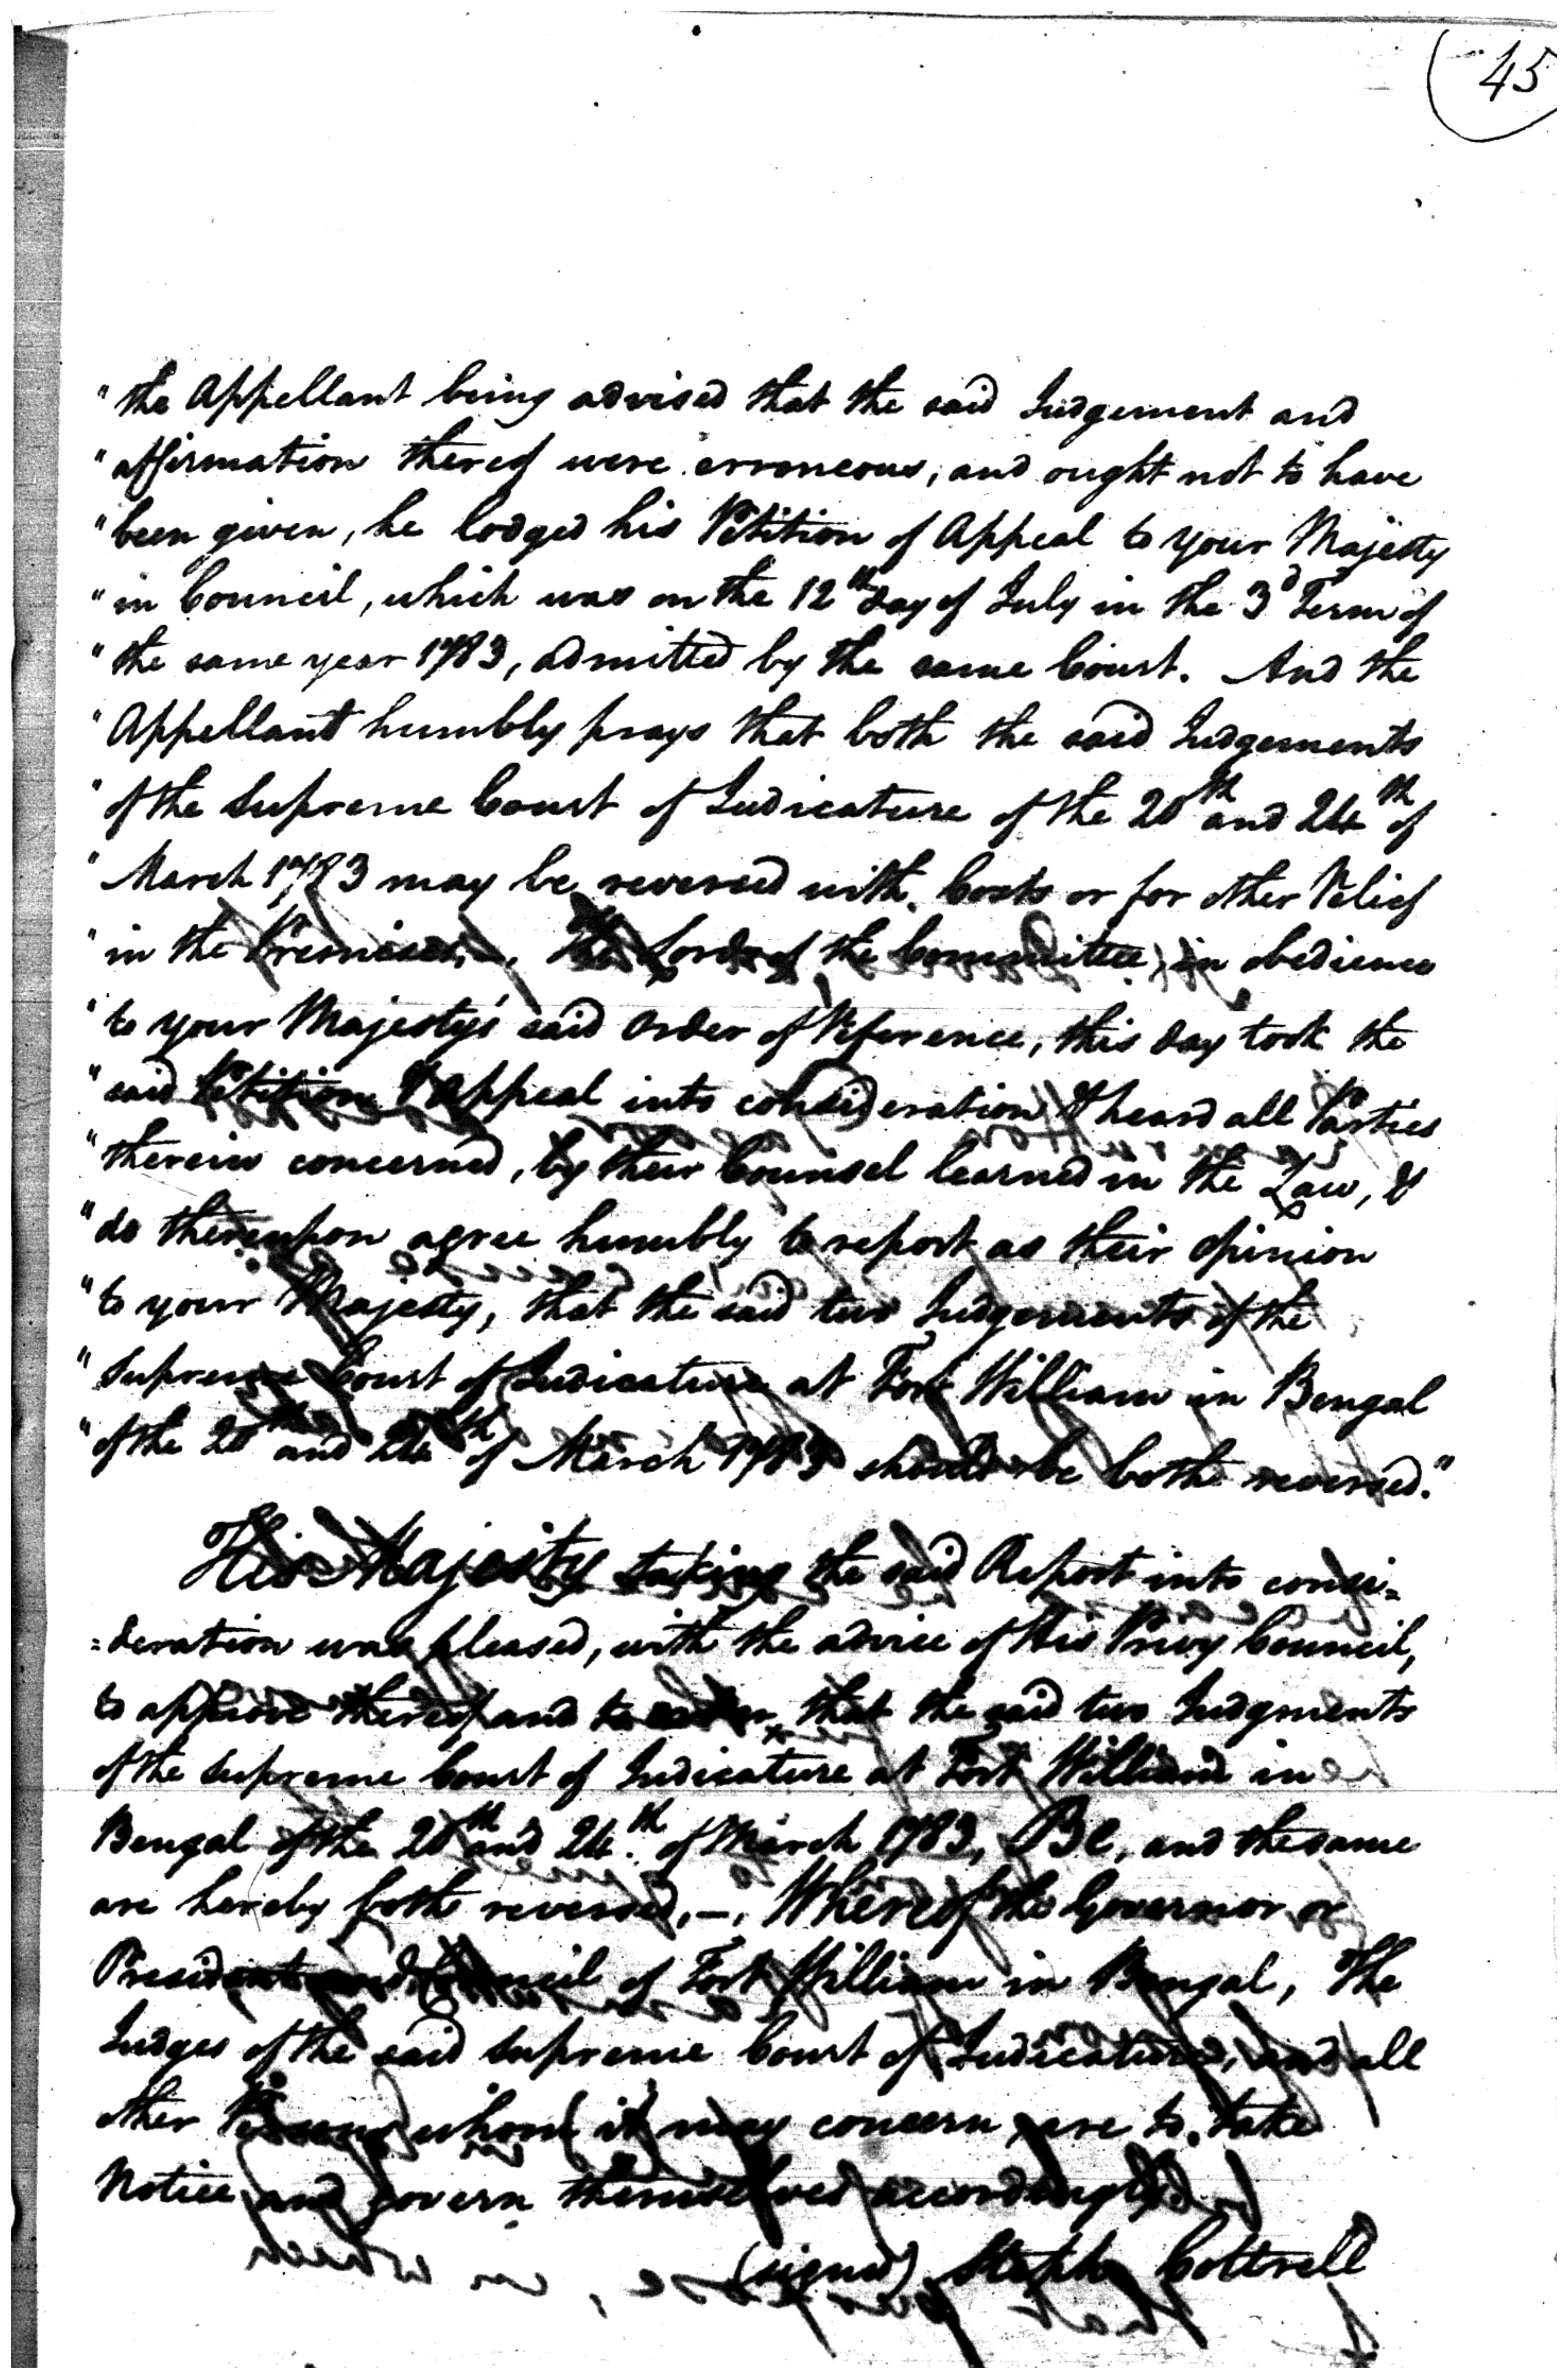 45
"the Appellant being advised that the said Judgement and
"affirmation thereof were erroneous, and ought not to have
"been given, he lodged his Petition of Appeal to your Majesty
"in Council, which was on the 12th day of July in the 3d Term of
"the same year 1783, admitted by the same Court. And the
"Appellant humbly prays that both the said Judgements
"of the Supreme Court of Judicature of the 20th and 24th of
"March 1783 may be reversed with Costs or for other Relief
"in the Premises. The Lords of the Committee, in obedience
"to your Majesty's said Order of Reference, this day took the
"said Petition & Appeal into consideration & heard all Parties
"therein concerned, by their Counsel learned in the Law, &
"do thereupon agree humbly to report as their opinion
"to your Majesty, that the said two Judgements of the
"Supreme Court of Judicature at Fort William in Bengal
"of the 20th and 24th of March 1783 should be both reversed."
His Majesty taking the said Report into consi=
=deration was pleased, with the advice of His Privy Council,
to approve thereof and to order that the said two Judgments
of the Supreme Court of Judicature at Fort William in
Bengal of the 20th and 24th. of March 1783, Be, and the same
are hereby both reversed,—. Whereof the Governor or
President and Council of Fort William in Bengal, The
Judges of the said Supreme Court of Judicature, and all
other Persons whom it may concern are to take
Notice and govern themselves accordingly.
(signed) Steph. Cottrell